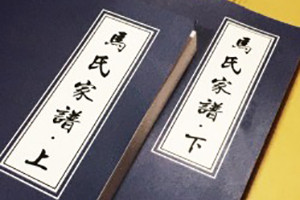 馬氏家譜·上
馬氏家譜·下